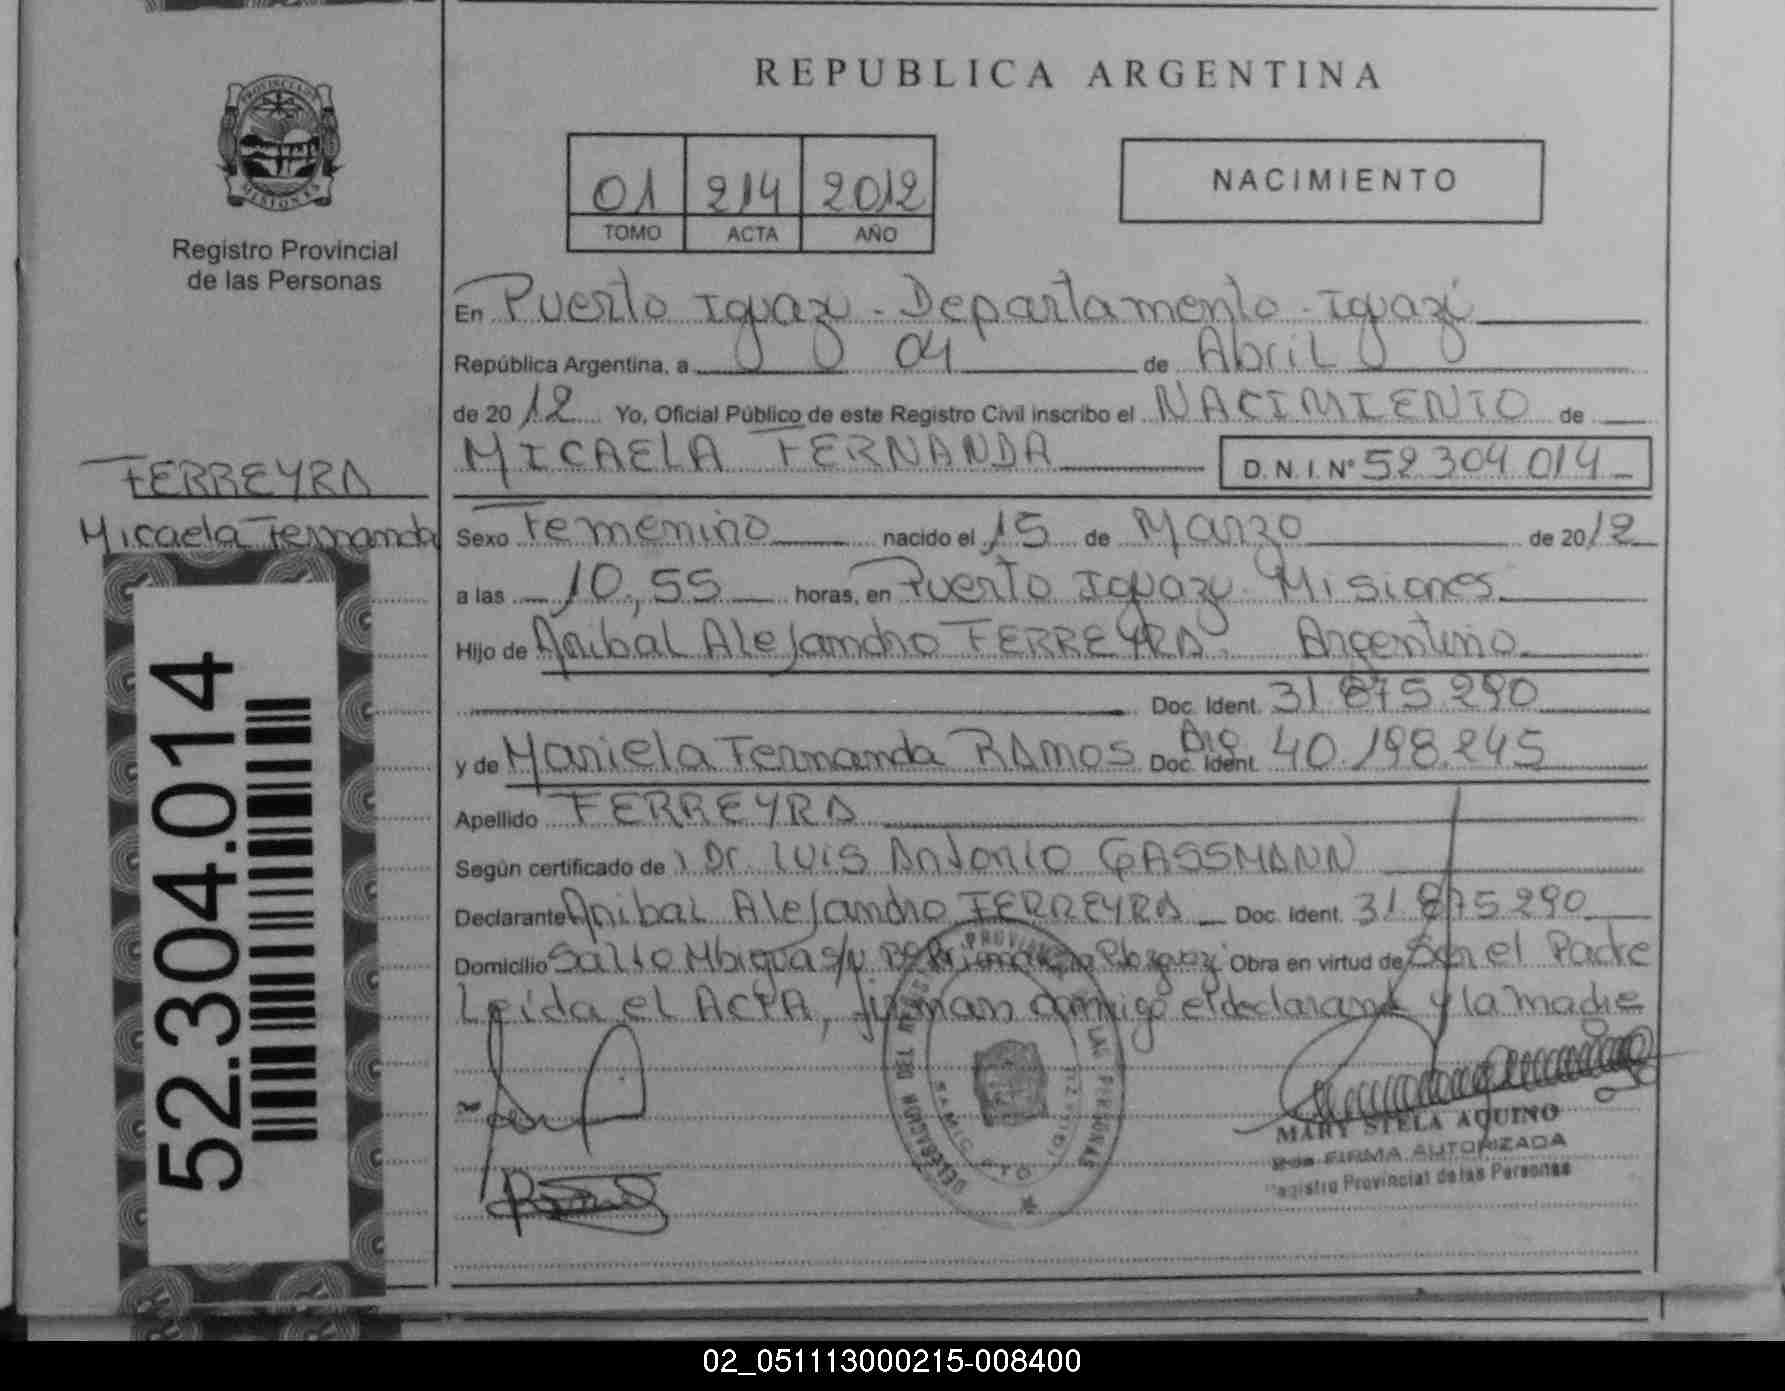 PROVINCIA DE
MISIONES
Registro Provincial
de las Personas
FERREYRA
Micaela Fernanda
52.304.014
REPUBLICA ARGENTINA
01 214 2012
TOMO ACTA AÑO
NACIMIENTO
En Puerto Iguazu - Departamento - Iguazú
República Argentina, a 04 de Abril
de 2012 Yo, Oficial Público de este Registro Civil inscribo el NACIMIENTO de
MICAELA FERNANDA D.N.I.N° 52 304 014
Sexo Femenino nacido el 15 de Marzo de 2012
a las 10,55 horas, en Puerto Iguazu - Misiones
Hijo de Anibal Alejandro FERREYRA. Argentino
Doc. Ident. 31 875 290
y de Mariela Fernanda RAMOS Arg Doc. Ident. 40.198.245
Apellido FERREYRA
Según certificado de Dr. LUIS Antonio GASSMANN
Declarante Anibal Alejandro FERREYRA Doc. Ident. 31 875 290
Domicilio Salto Mbigua s/n Obra en virtud de Ser el Padre
Leída el ACTA, firman conmigo el declarante y la madre
MARY STELA AQUINO
FIRMA AUTORIZADA
Registro Provincial de las Personas
02_051113000215-008400